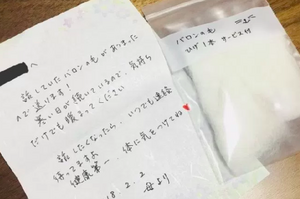 へ
話していたバロンの毛が集まった
ので送ります！
寒い日が続いているので、気持ち
だけでも暖まってください
話したくなったら、いつでも連絡
待ってますよ
健康第一、体に気をつけてね
18.2.2
母より
バロンの毛
ひげ1本 サービス付